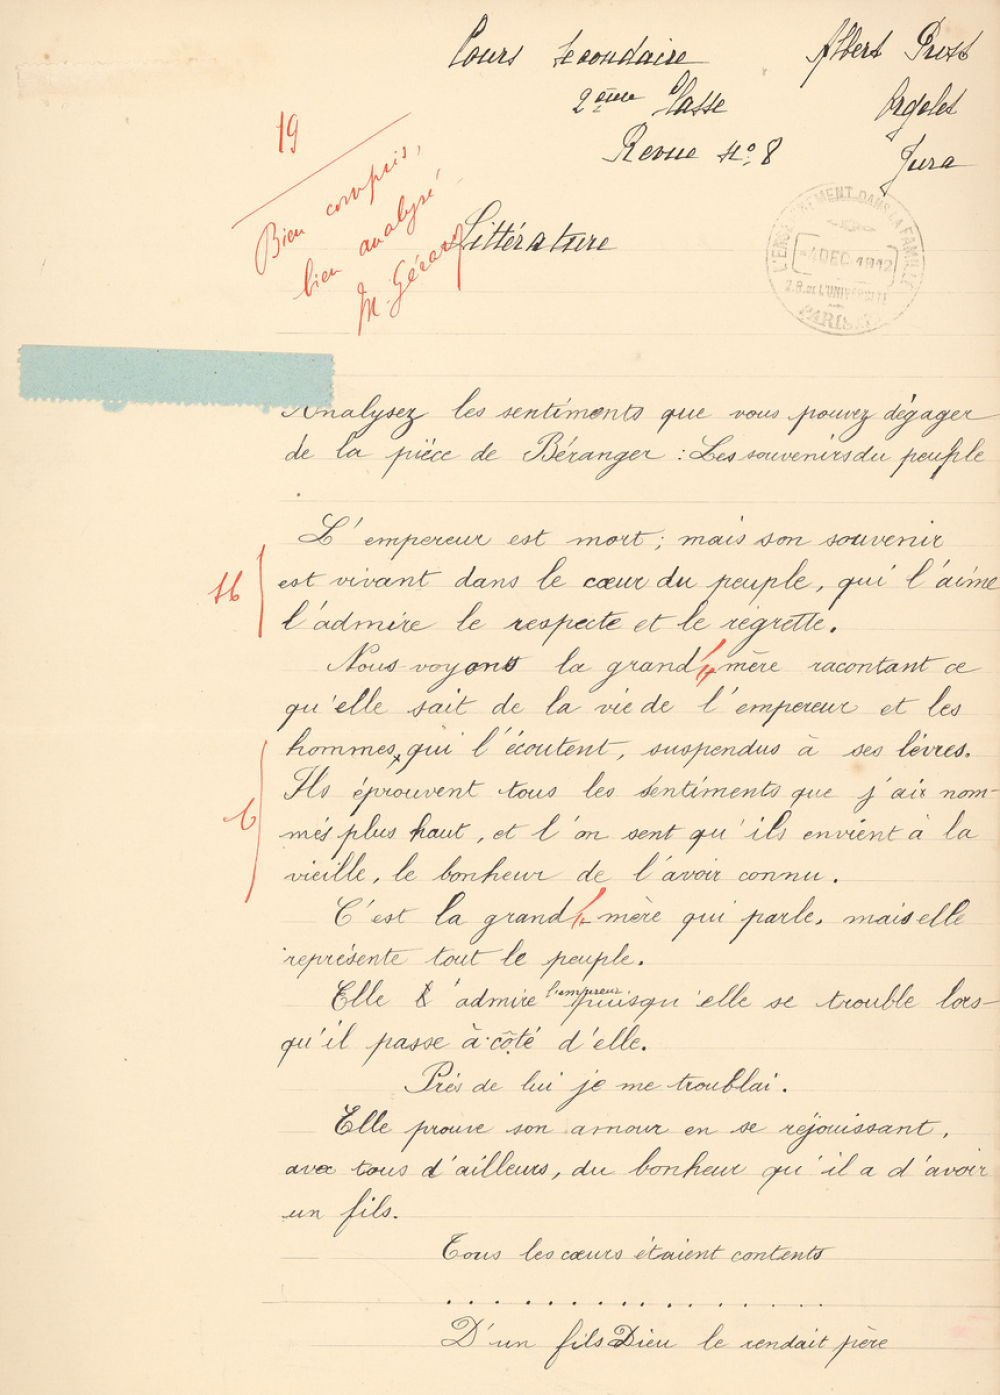 Cours Secondaire Albert Prost
2ème Classe Orgelet
Revue No. 8 Jura
19
Bien compris,
bien analysé
M. Gérard
Littérature
L'ENSEIGNEMENT DANS LA FAMILLE
4 DEC 1912
2.B. DE L'UNIVERSITÉ
PARIS
Analysez les sentiments que vous pouvez dégager
de la pièce de Béranger : Les souvenirs du peuple
L'empereur est mort ; mais son souvenir
est vivant dans le cœur du peuple, qui l'aime
l'admire le respecte et le regrette.
tb
Nous voyons la grand'mère racontant ce
qu'elle sait de la vie de l'empereur et les
hommes, qui l'écoutent, suspendus à ses lèvres.
Ils éprouvent tous les sentiments que j'ai nom-
més plus haut, et l'on sent qu'ils envient à la
b
vieille, le bonheur de l'avoir connu.
C'est la grand'mère qui parle, mais elle
représente tout le peuple.
Elle admire l'empereur puisqu'elle se trouble lors-
qu'il passe à côté d'elle.
Près de lui je me troublai.
Elle prouve son amour en se réjouissant,
avec tous d'ailleurs, du bonheur qu'il a d'avoir
un fils.
Tous les cœurs étaient contents
. . . . . . . . . . . . . . . . .
D'un fils Dieu le rendait père